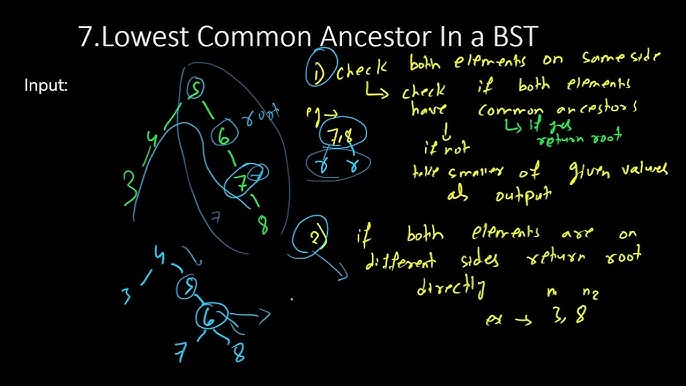 7.Lowest Common Ancestor In a BST
Input:
5
4
6 root
3
7
8
7
4
3
5
6
7 8
1) check both elements on same side
↳ check if both elements
have common ancestors
↳ if yes
return root
if not
take smaller of given values
as output
eg →
7,8
r r
2) if both elements are on
different sides return root
directly
n n2
ex → 3, 8